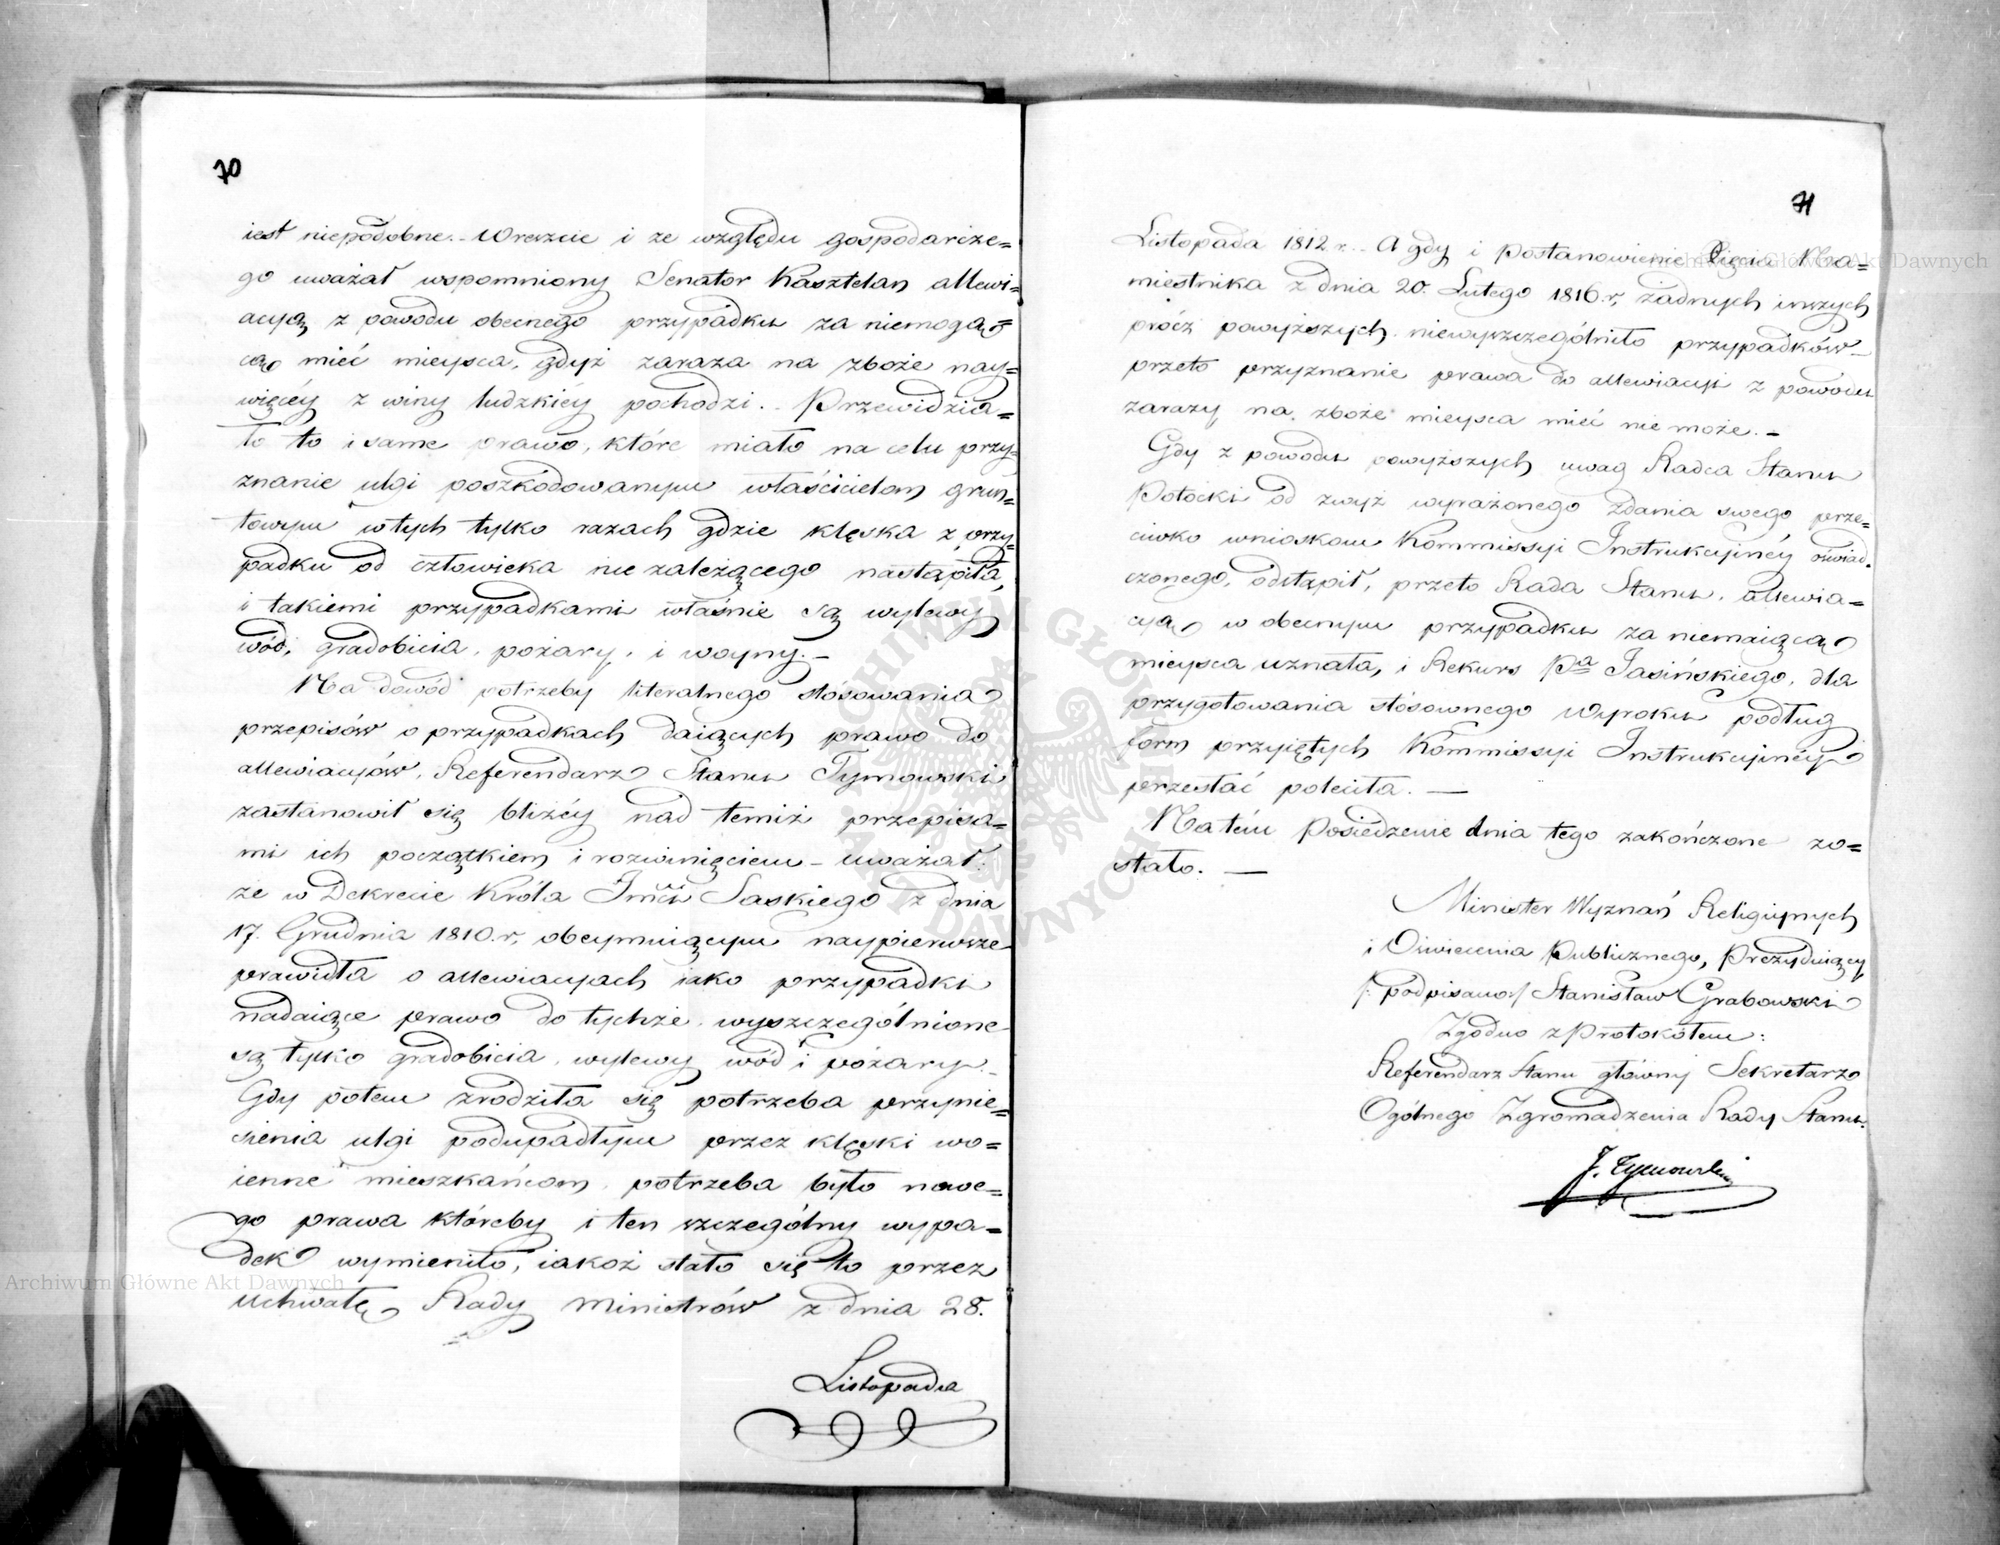 70
iest niepodobne. Wreszcie i ze względu gospodarcze=
go uważał wspomniony Senator Kasztelan allewi=
acyą z powodu obecnego przypadku za niemogą=
cą mieć mieysca, gdyż zaraza na zboże nay=
więcéy z winy ludzkiéy pochodzi. Przewidzia=
ło to i same prawo, które miało na celu przy=
znanie ulgi poszkodowanym właścicielom grun=
towym w tych tylko razach gdzie klęska z przy=
padku od człowieka nie zależącego nastąpiła,
i takiemi przypadkami właśnie są wylewy
wód, gradobicia, pożary, i woyny. —
Na dowód potrzeby literalnego stósowania
przepisów o przypadkach daiących prawo do
allewiacyów, Referendarz Stanu Tymowski
zastanowił się bliżéy nad temiż przepisa=
mi ich początkiem i rozwinięciem — uważał:
że w Dekrecie Króla Jmci Saskiego z dnia
17. Grudnia 1810. r, obeymuiącym naypierwsze
prawidła o allewiacyach iako przypadki
nadaiące prawo do tychże, wyszczególnione
są tylko gradobicia, wylewy wód i pożary. —
Gdy potem zrodziła się potrzeba przynie=
sienia ulgi podupadłym przez klęski wo=
ienne mieszkańcom, potrzeba było nowe=
go prawa któreby i ten szczególny wypa=
dek wymieniło, iakoż stało się to przez
Uchwałę Rady Ministrów z dnia 28.
Listopada
71
Listopada 1812 r. A gdy i Postanowienie Xięcia Na=
miestnika z dnia 20. Lutego 1816. r, żadnych inszych
prócz powyższych niewyszczególniło przypadków —
przeto przyznanie prawa do allewiacyi z powodu
zarazy na zboże mieysca mieć nie może. —
Gdy z powodu powyższych uwag Radca Stanu
Potocki od zwyż wyrażonego zdania swego prze=
ciwko wnioskom Kommissyi Instrukcyinéy oświad=
czonego, odstąpił, przeto Rada Stanu, allewia=
cyą w obecnym przypadku za niemaiącą
mieysca uznała, i Rekurs Pa Jasińskiego, dla
przygotowania stósownego Wyroku podług
form przyiętych Kommissyi Instrukcyinéy
przesłać poleciła. —
Na tém Posiedzenie dnia tego zakończone zo=
stało. —
Minister Wyznań Religiynych
i Oświecenia Publicznego, Prezyduiący
/: podpisano:/ Stanisław Grabowski
Zgodno z Protokołem:
Referendarz Stanu główny Sekretarz
Ogólnego Zgromadzenia Rady Stanu.
J. Tymowski
Archiwum Główne Akt Dawnych
Archiwum Główne Akt Dawnych
ARCHIWUM GŁÓWNE AKT DAWNYCH